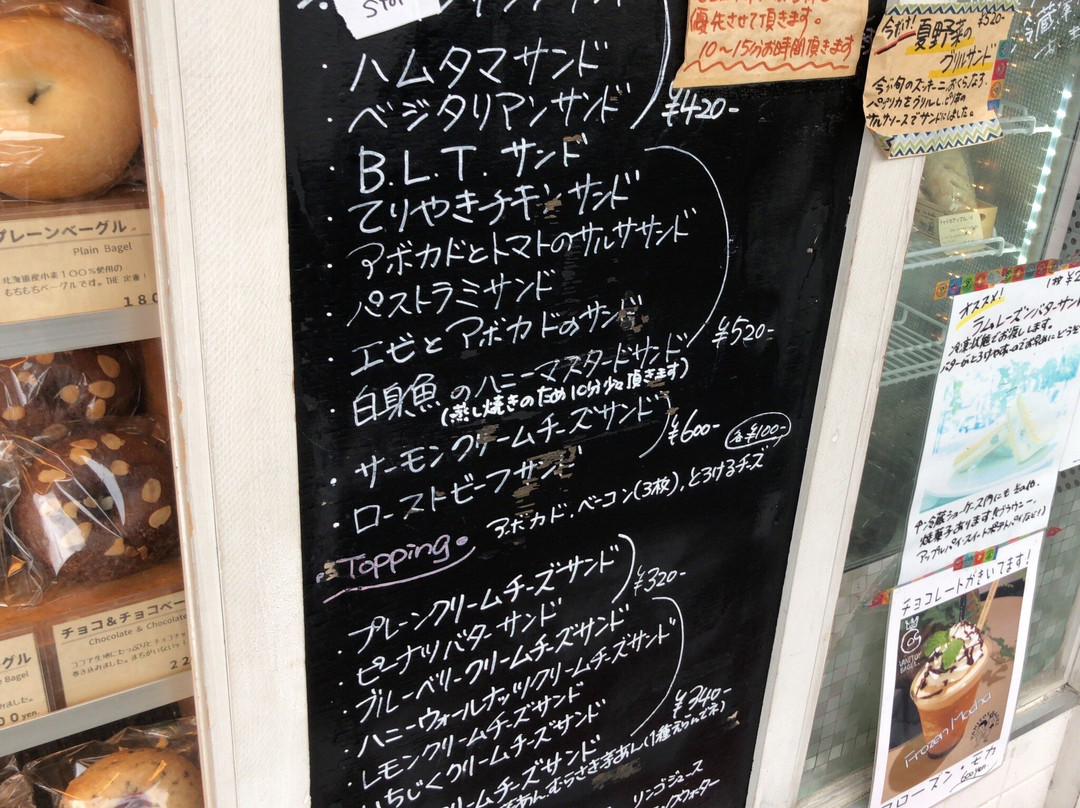 プレーンベーグル
Plain Bagel
北海道産小麦100%使用の
もちもちベーグルです。THE 定番!
180
チョコ&チョコベー
Chocolate & Chocola
ココア生地にたっぷりとチョコチッ
22
グル
Bagel
00yen.
Stor
・ハムタマサンド
・ベジタリアンサンド
¥420-
・B.L.T. サンド
・てりやきチキンサンド
・アボカドとトマトのサルササンド
・パストラミサンド
・エビとアボカドのサンド
¥520-
・白身魚のハニーマスタードサンド
(蒸し焼きのため10分少々頂きます)
・サーモンクリームチーズサンド
¥600-
・ローストビーフサンド
各¥100-
アボカド、ベーコン(3枚)、とろけるチーズ
Topping
・プレーンクリームチーズサンド
¥320-
・ピーナツバターサンド
・ブルーベリークリームチーズサンド
・ハニーウォールナッツクリームチーズサンド
・レモンクリームチーズサンド
¥340-
・いちじくクリームチーズサンド
クリームチーズサンド
あん、むらさき芋あん(1種えらんでネ)
リンゴジュース
優先させて頂きます。
10〜15分お時間頂きます
今だけ! ¥520-
夏野菜の
グリルサンド
今が旬のズッキーニ、おくら、なす、
パプリカをグリルし、ピリ辛の
サルサソースでサンドにしました。
オススメ! 1枚¥2
ラムレーズンバターサンド
冷凍状態でお渡しします。
冷蔵ショーケース内にも
焼菓子あります!(ブラウニー、
アップルパイ、スイートポテトパイなど!)
チョコレートがきいてます!
Frozen Mocha
フローズン・モカ
600yen